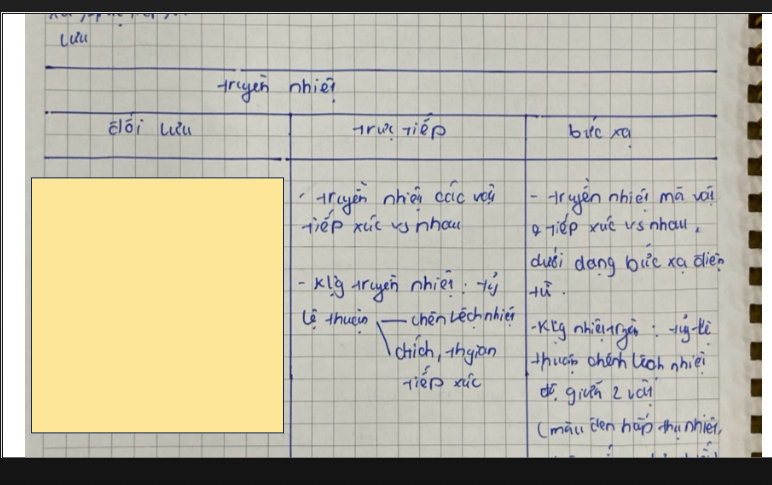 lưu
truyền nhiệt
đối lưu
trực tiếp
bức xạ
- truyền nhiệt các vật
tiếp xúc vs nhau
- Klg truyền nhiệt : tỷ
lệ thuận — chên lệch nhiệt
chích, thgian
tiếp xúc
- truyền nhiệt mà vật
ko tiếp xúc vs nhau,
dưới dạng bức xạ điện
từ.
-Klg nhiệt truyền : tỷ lệ
thuận chênh lệch nhiệt
độ giữa 2 vật
(màu đen hấp thụ nhiệt,